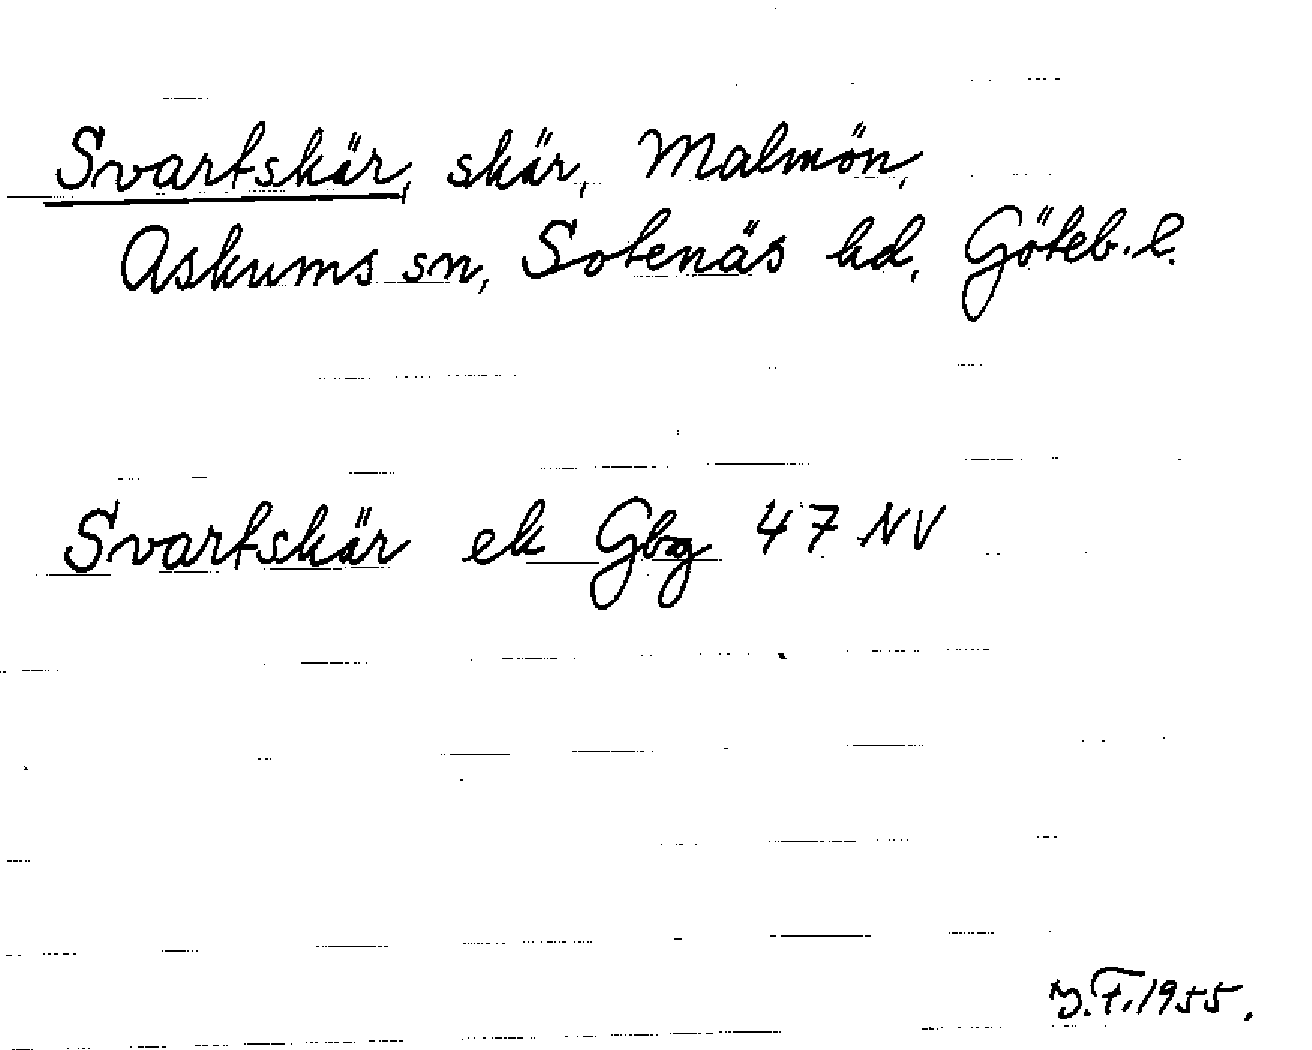 Svartskär, skär, Malmön,
Askums sn, Sotenäs hd, Göteb. l.
Svartskär ek Gbg 47 NV
y. F. 1955.